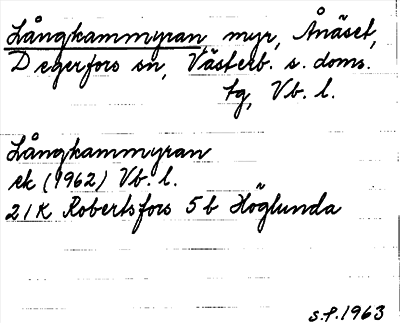 Långkammyran, myr, Ånäset,
Degerfors sn, Västerb. s. doms.
tg, Vb. l.
Långkammyran
ek (1962) Vb. l.
21K Robertsfors 5b Höglunda
s.f. 1963